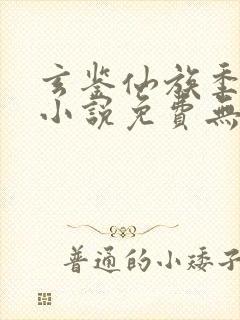 玄鉴仙族季
小說免費無
普通的小矮子